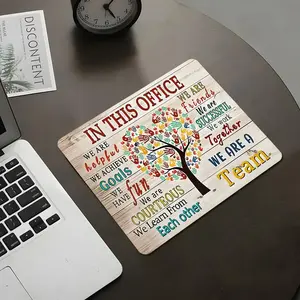 DISCONTENT
IN THIS OFFICE
WE ARE
helpful
WE ACHIEVE
Goals
WE
HAVE fun
WE ARE
COURTEOUS
We Learn From
Each Other
WE ARE
Friends
We are
SUCCESSFUL
We work
Together
WE ARE A
Team